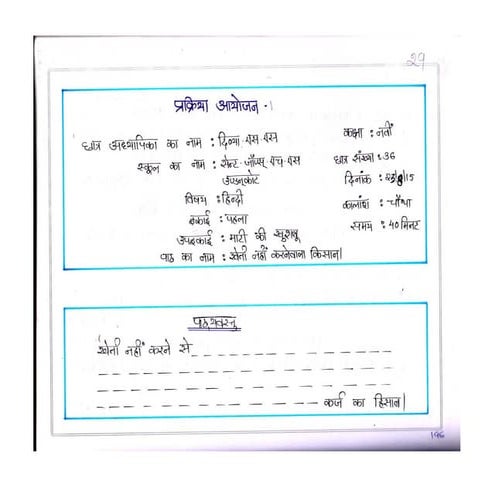 29
प्रक्रिया आयोजन -1
छात्र अध्यापिका का नाम : दिव्या.एस.एस
कक्षा : नवीं
स्कूल का नाम : सेन्ट. जॉसफ् एच.एस
छात्र संख्या : 36
दिनांक : 23/8/15
विषय : हिन्दी
कालांश : चौथा
इकाई : पहला
समय : 40 मिनट
उपइकाई : माटी की खुशबू
पाठ का नाम : खेती नहीं करनेवाला किसान।
पाठ्यवस्तु
खेती नहीं करने से
कर्ज का हिसाब।